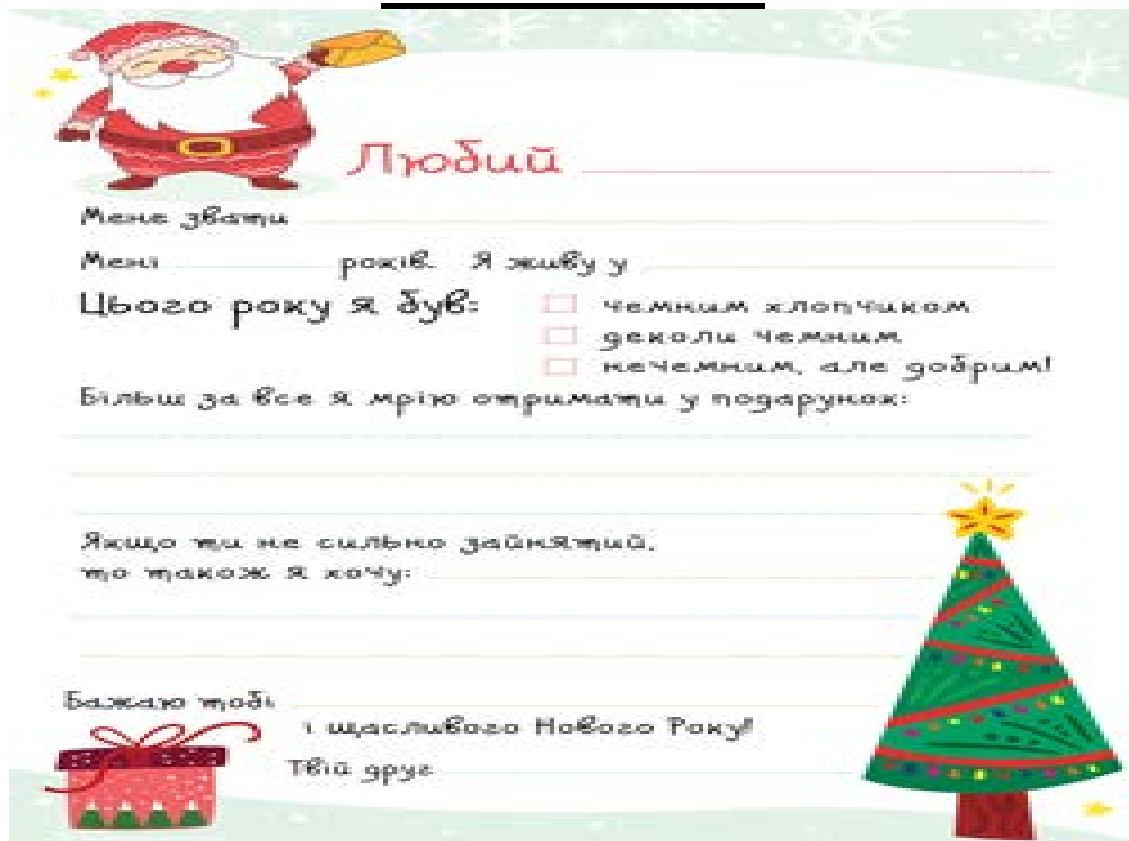 Любий
Мене звати
Мені років. Я живу у
Цього року я був:
чемним хлопчиком
деколи чемним
нечемним, але добрим!
Більш за все я мрію отримати у подарунок:
Якщо ти не сильно зайнятий,
то також я хочу:
Бажаю тобі
і щасливого Нового Року!
Твій друг